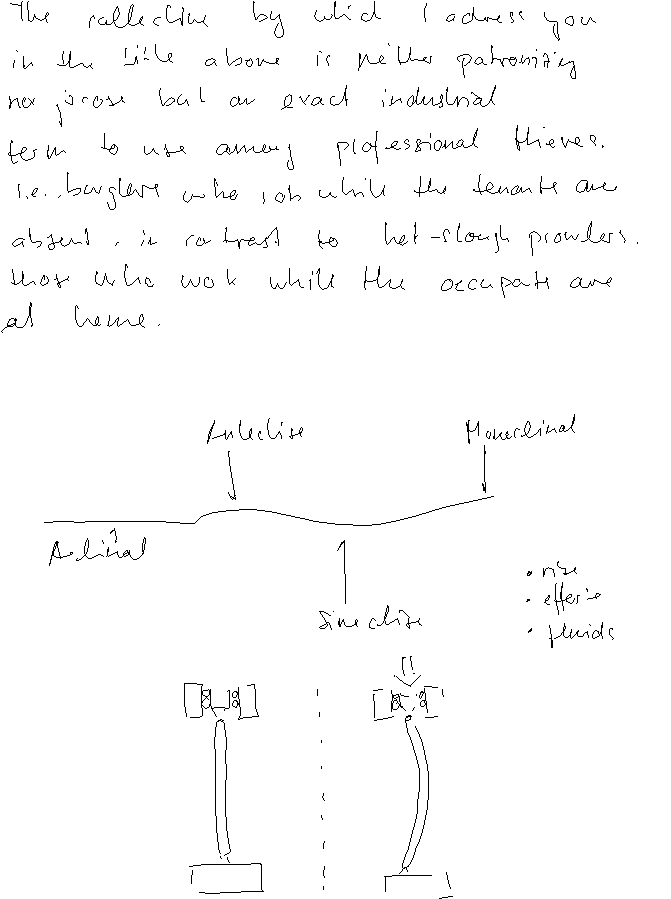 The collective by which I adress you
in the title above is neither patronizing
nor jocose but an exact industrial
term to use among professional thieves.
i.e. burglers who job while the tenants are
absent, in contrast to hot-slough prowlers.
those who work while the occupats are
at home.
Anteclise Monoclinal
Aclinal
• rise
• efferie
• fluids
Sineclise
!!